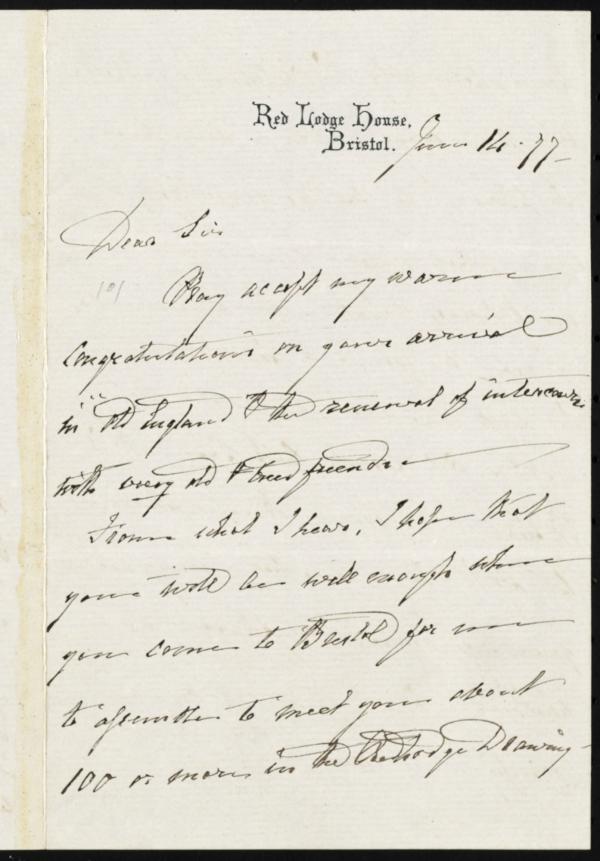 Red Lodge House,
Bristol.
June 14. 77-
Dear Sir
101
Pray accept my warm
congratulations on your arrival
in old England & the renewal of intercourse
with very old & tried friends -
From what I hear, I hope that
you will be well enough when
you come to Bristol for me
to assemble to meet you about
100 or more in the Red Lodge Drawing-